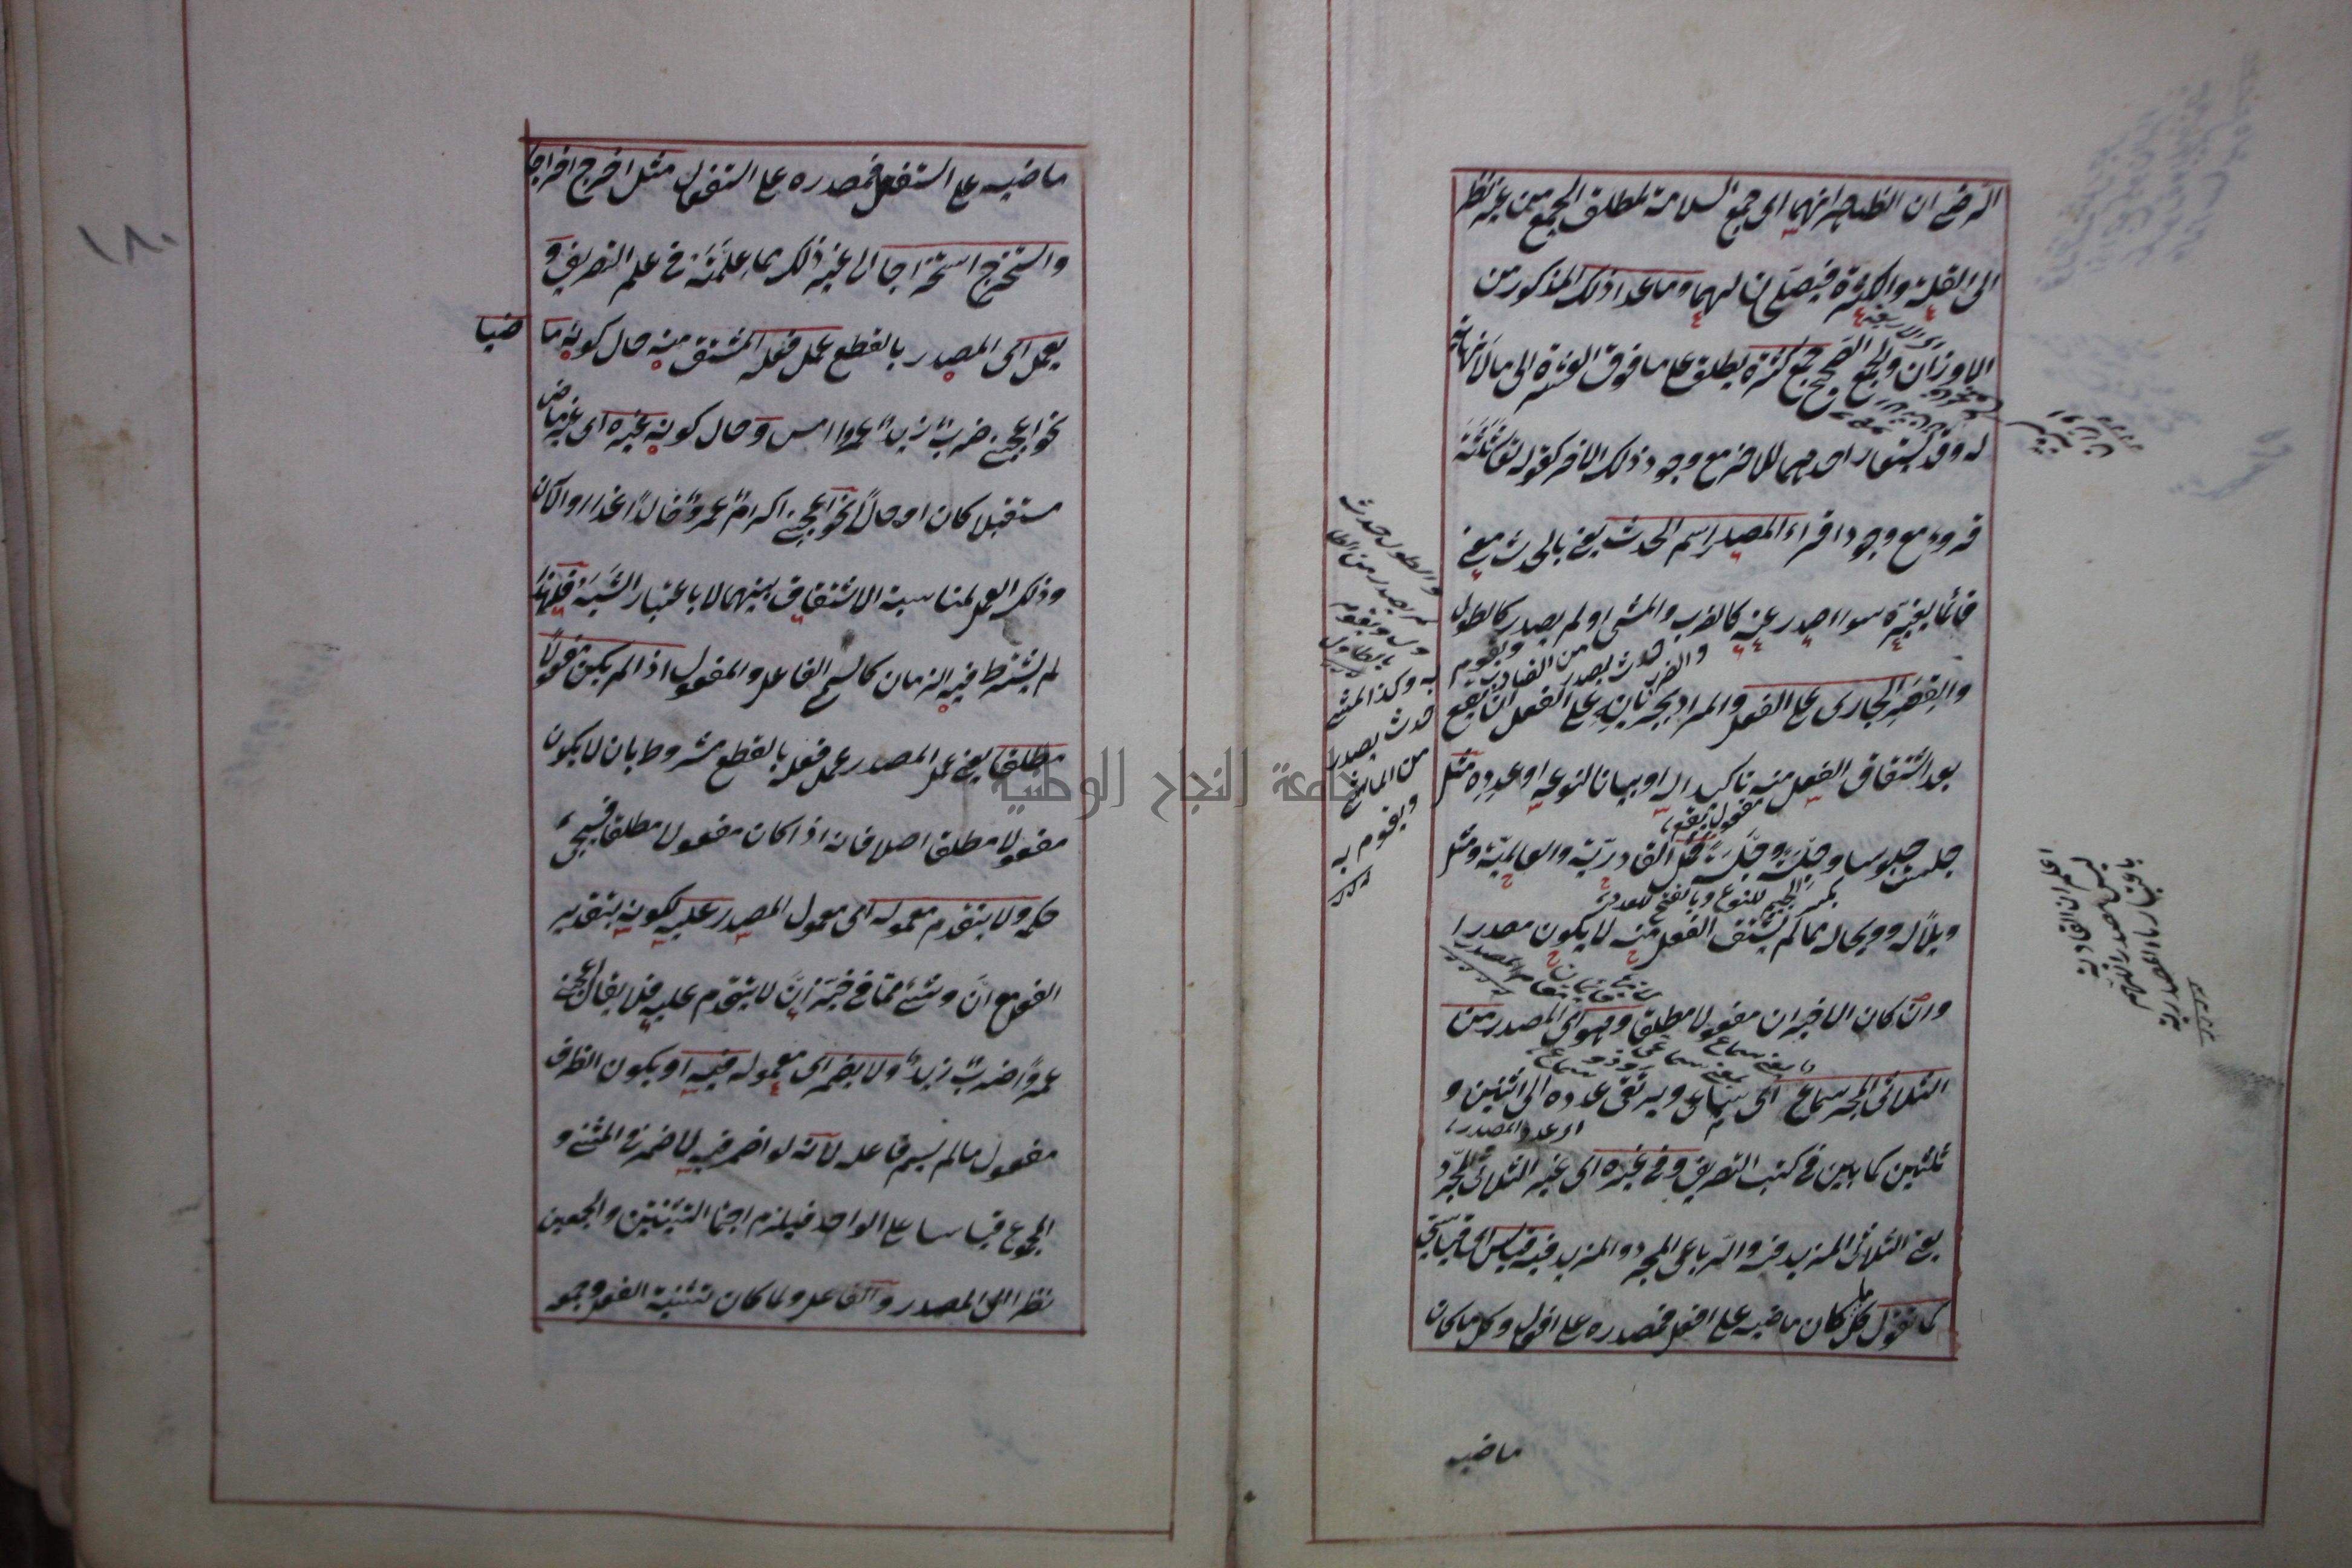 الرضى ان الظاهر انهما اى جمع السلامة لمطلق الجمع من غير نظر
الى القلة والكثرة فيصلحان لهما وما عدا ذلك المذكور من
الاوزان والجمع الصحيح جمع كثرة يطلق على ما فوق العشرة الى ما لا نهاية
له وقد يستعار احدهما للاخر مع وجود ذلك الاخر كقوله تعا ثلثة
قروء مع وجود اقراء المصدر اسم الحدث يعنى بالحدث معنى
قائما بغيره سواء صدر عنه كالضرب والمشى او لم يصدر كالطول
والقصر الجارى على الفعل والمراد بجريانه على الفعل ان يقع
بعد اشتقاق الفعل منه تاكيدا له او بيانا لنوعه او عدده مثل
جلست جلوسا وجلسة وجلسة فمثل القادرية والعالمية ومثل
ويلا له وويحا له مما لم يشتق الفعل منه لا يكون مصدرا
وان كان الاخيران مفعولا مطلقا وهو اى المصدر من
الثلاثى المجرد سماع اى سماعى ويرتقى عدده الى اثنين و
ثلثين كما بين فى كتب التصريف وفى غيره اى غير الثلاثى المجرد
يعنى الثلاثى المزيد فيه والرباعى المجرد والمزيد فيه قياس اى قياسى
كما تقول كل ما كان ماضيه على افعل فمصدره على افعال وكل ما كان
ماضيه
والطول حدث
لم يصدر من الطا
ويقوم
به وكذا المشى
حدث يصدر
من الماشى
ويقوم به
والضرب حدث يصدر من الضارب ويقوم
بكسر الجيم للنوع وبالفتح للعدد
اى عدد المصدر
ماضيه على استفعل فمصدره على استفعال مثل اخرج اخراجا
واستخرج استخراجا الى غير ذلك مما علمته فى علم التصريف و
يعمل اى المصدر بالقطع عمل فعله المشتق منه حال كونه ما
ضيا
نحو اعجبنى ضرب زيد عمروا امس وحال كونه غيره اى غير ماض
مستقبلا كان او حالا نحو اعجبنى اكرام عمرو خالدا غدا او الان
وذلك العمل لمناسبة الاشتقاق بينهما لا باعتبار الشبه فلهذا
لم يشترط فيه الزمان كاسم الفاعل والمفعول اذا لم يكن مفعولا
مطلقا يعنى عمل المصدر عمل فعله بالقطع مشروط بان لا يكون
مفعولا مطلقا اصلا فانه اذا كان مفعولا مطلقا فسيجئ
حكمه ولا يتقدم معموله اى معمول المصدر عليه لكونه بتقدير
الفعل مع ان وشئ مما فى خبر ان لا يتقدم عليه فلا يقال اعجبنى
عمروا ضرب زيد ولا يضمر اى معموله فيه او يكون الظرف
مفعول ما لم يسم فاعله لانه لو اضمر فيه لاضمر فى المثنى و
المجموع قياسا على الواحد فيلزم اجتماع التثنيتين والجمعين
نظرا الى المصدر والفاعل ولما كان تثنية الفعل وجمعه
١٨٠
جامعة النجاح الوطنية